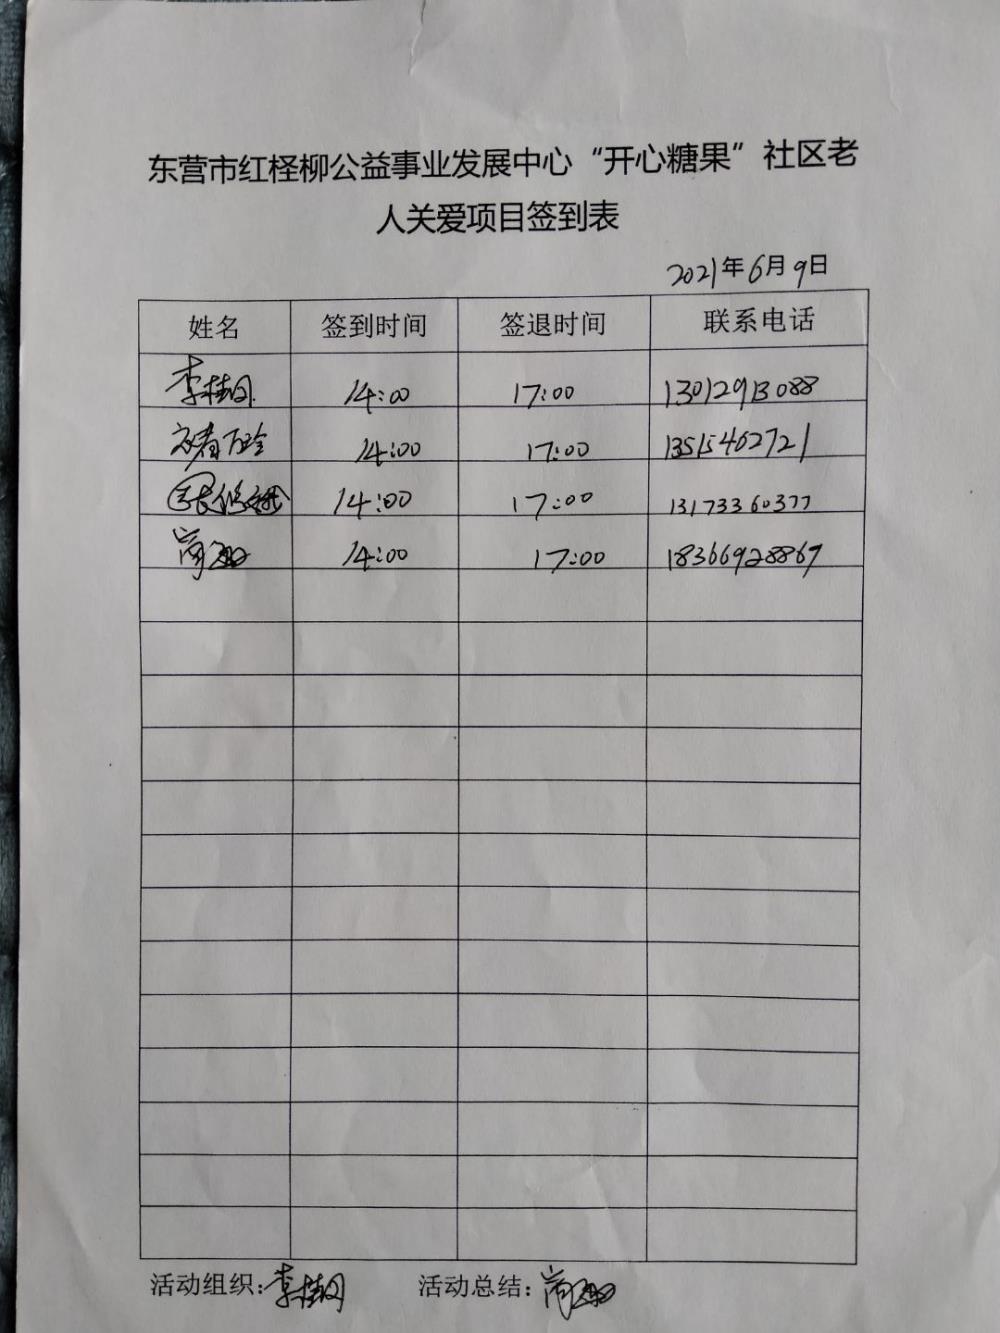 东营市红柽柳公益事业发展中心“开心糖果”社区老
人关爱项目签到表
2021年6月9日
姓名 签到时间 签退时间 联系电话
李桂 14:00 17:00 13012913088
14:00 17:00 13515462721
14:00 17:00 13173360377
14:00 17:00 18366928867
活动组织:李桂 活动总结: